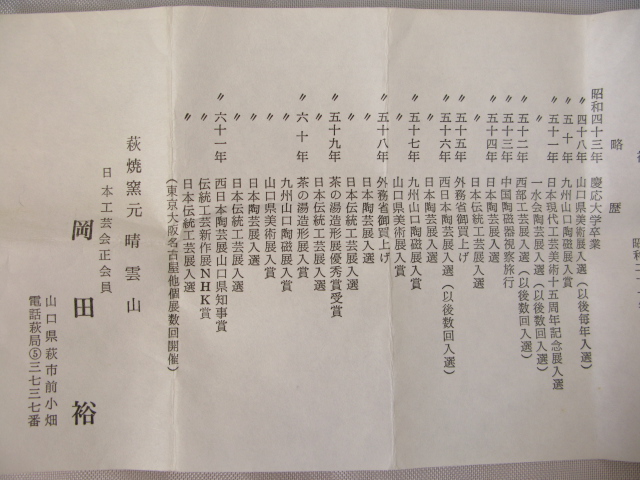 略歴
昭和四十三年 慶応大学卒業
〃 四十八年 山口県美術展入選(以後毎年入選)
〃 五十年 九州山口陶磁展入賞
〃 五十一年 日本現代工芸美術十五周年記念展入選
〃 一水会陶芸展入選(以後数回入選)
〃 五十二年 西部工芸展入選(以後数回入選)
〃 五十三年 中国陶磁器視察旅行
〃 五十四年 日本陶芸展入選
〃 日本伝統工芸展入選
〃 五十五年 外務省御買上げ
〃 五十六年 西日本陶芸展入選(以後数回入選)
〃 日本陶芸展入選
〃 五十七年 九州山口陶磁展入賞
〃 山口県美術展入賞
〃 五十八年 外務省御買上げ
〃 日本陶芸展入選
〃 日本伝統工芸展入選
〃 五十九年 茶の湯造形展優秀賞受賞
〃 日本伝統工芸展入選
〃 六十年 茶の湯造形展入賞
〃 九州山口陶磁展入賞
〃 山口県美術展入賞
〃 日本陶芸展入選
〃 日本伝統工芸展入選
〃 六十一年 西日本陶芸展山口県知事賞
〃 伝統工芸新作展NHK賞
〃 日本伝統工芸展入選
(東京大阪名古屋他個展数回開催)
萩焼窯元 晴雲山
日本工芸会正会員
岡田 裕
山口県萩市前小畑
電話萩局⑤三七三七番